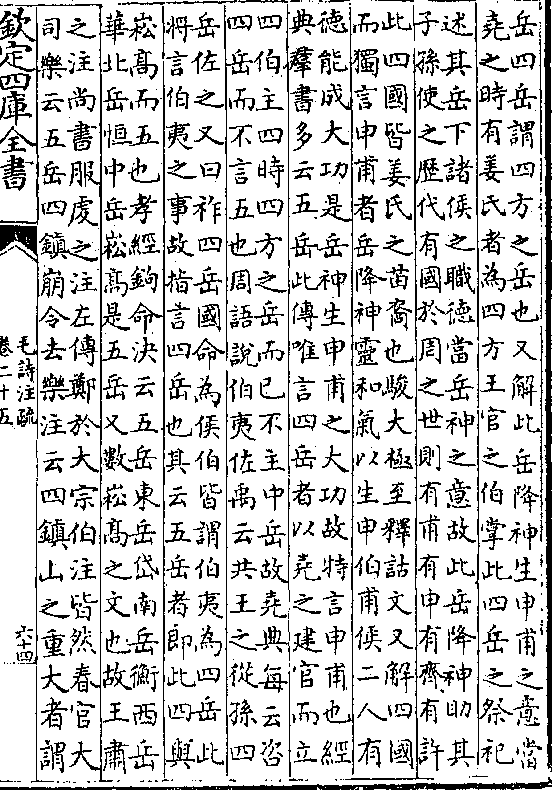 岳四岳謂四方之岳也又解此岳降神生申甫之意當
堯之時有姜氏者為四方王官之伯掌此四岳之祭祀
述其岳下諸侯之職德當岳神之意故此岳降神助其
子孫使之歷代有國於周之世則有甫有申有齊有許
此四國皆姜氏之苗裔也駿大極至釋詁文又解四國
而獨言申甫者岳降神靈和氣以生申伯甫侯二人有
德能成大功是岳神生申甫之大功故特言申甫也經
典羣書多云五岳此傳唯言四岳者以堯之建官而立
四伯主四時四方之岳而已不主中岳故堯典每云咨
四岳而不言五也周語說伯夷佐禹云共王之從孫四
岳佐之又曰祚四岳國命為侯伯皆謂伯夷為四岳此
將言伯夷之事故指言四岳也其云五岳者即此四與
崧高而五也孝經鉤命決云五岳東岳岱南岳衡西岳
華北岳恒中岳崧高是五岳又數崧高之文也故王肅
之注尚書服虔之注左傳鄭於大宗伯注皆然春官大
司樂云五岳四鎮崩令去樂注云四鎮山之重大者謂
欽定四庫全書
毛詩注疏
卷二十五
六十四